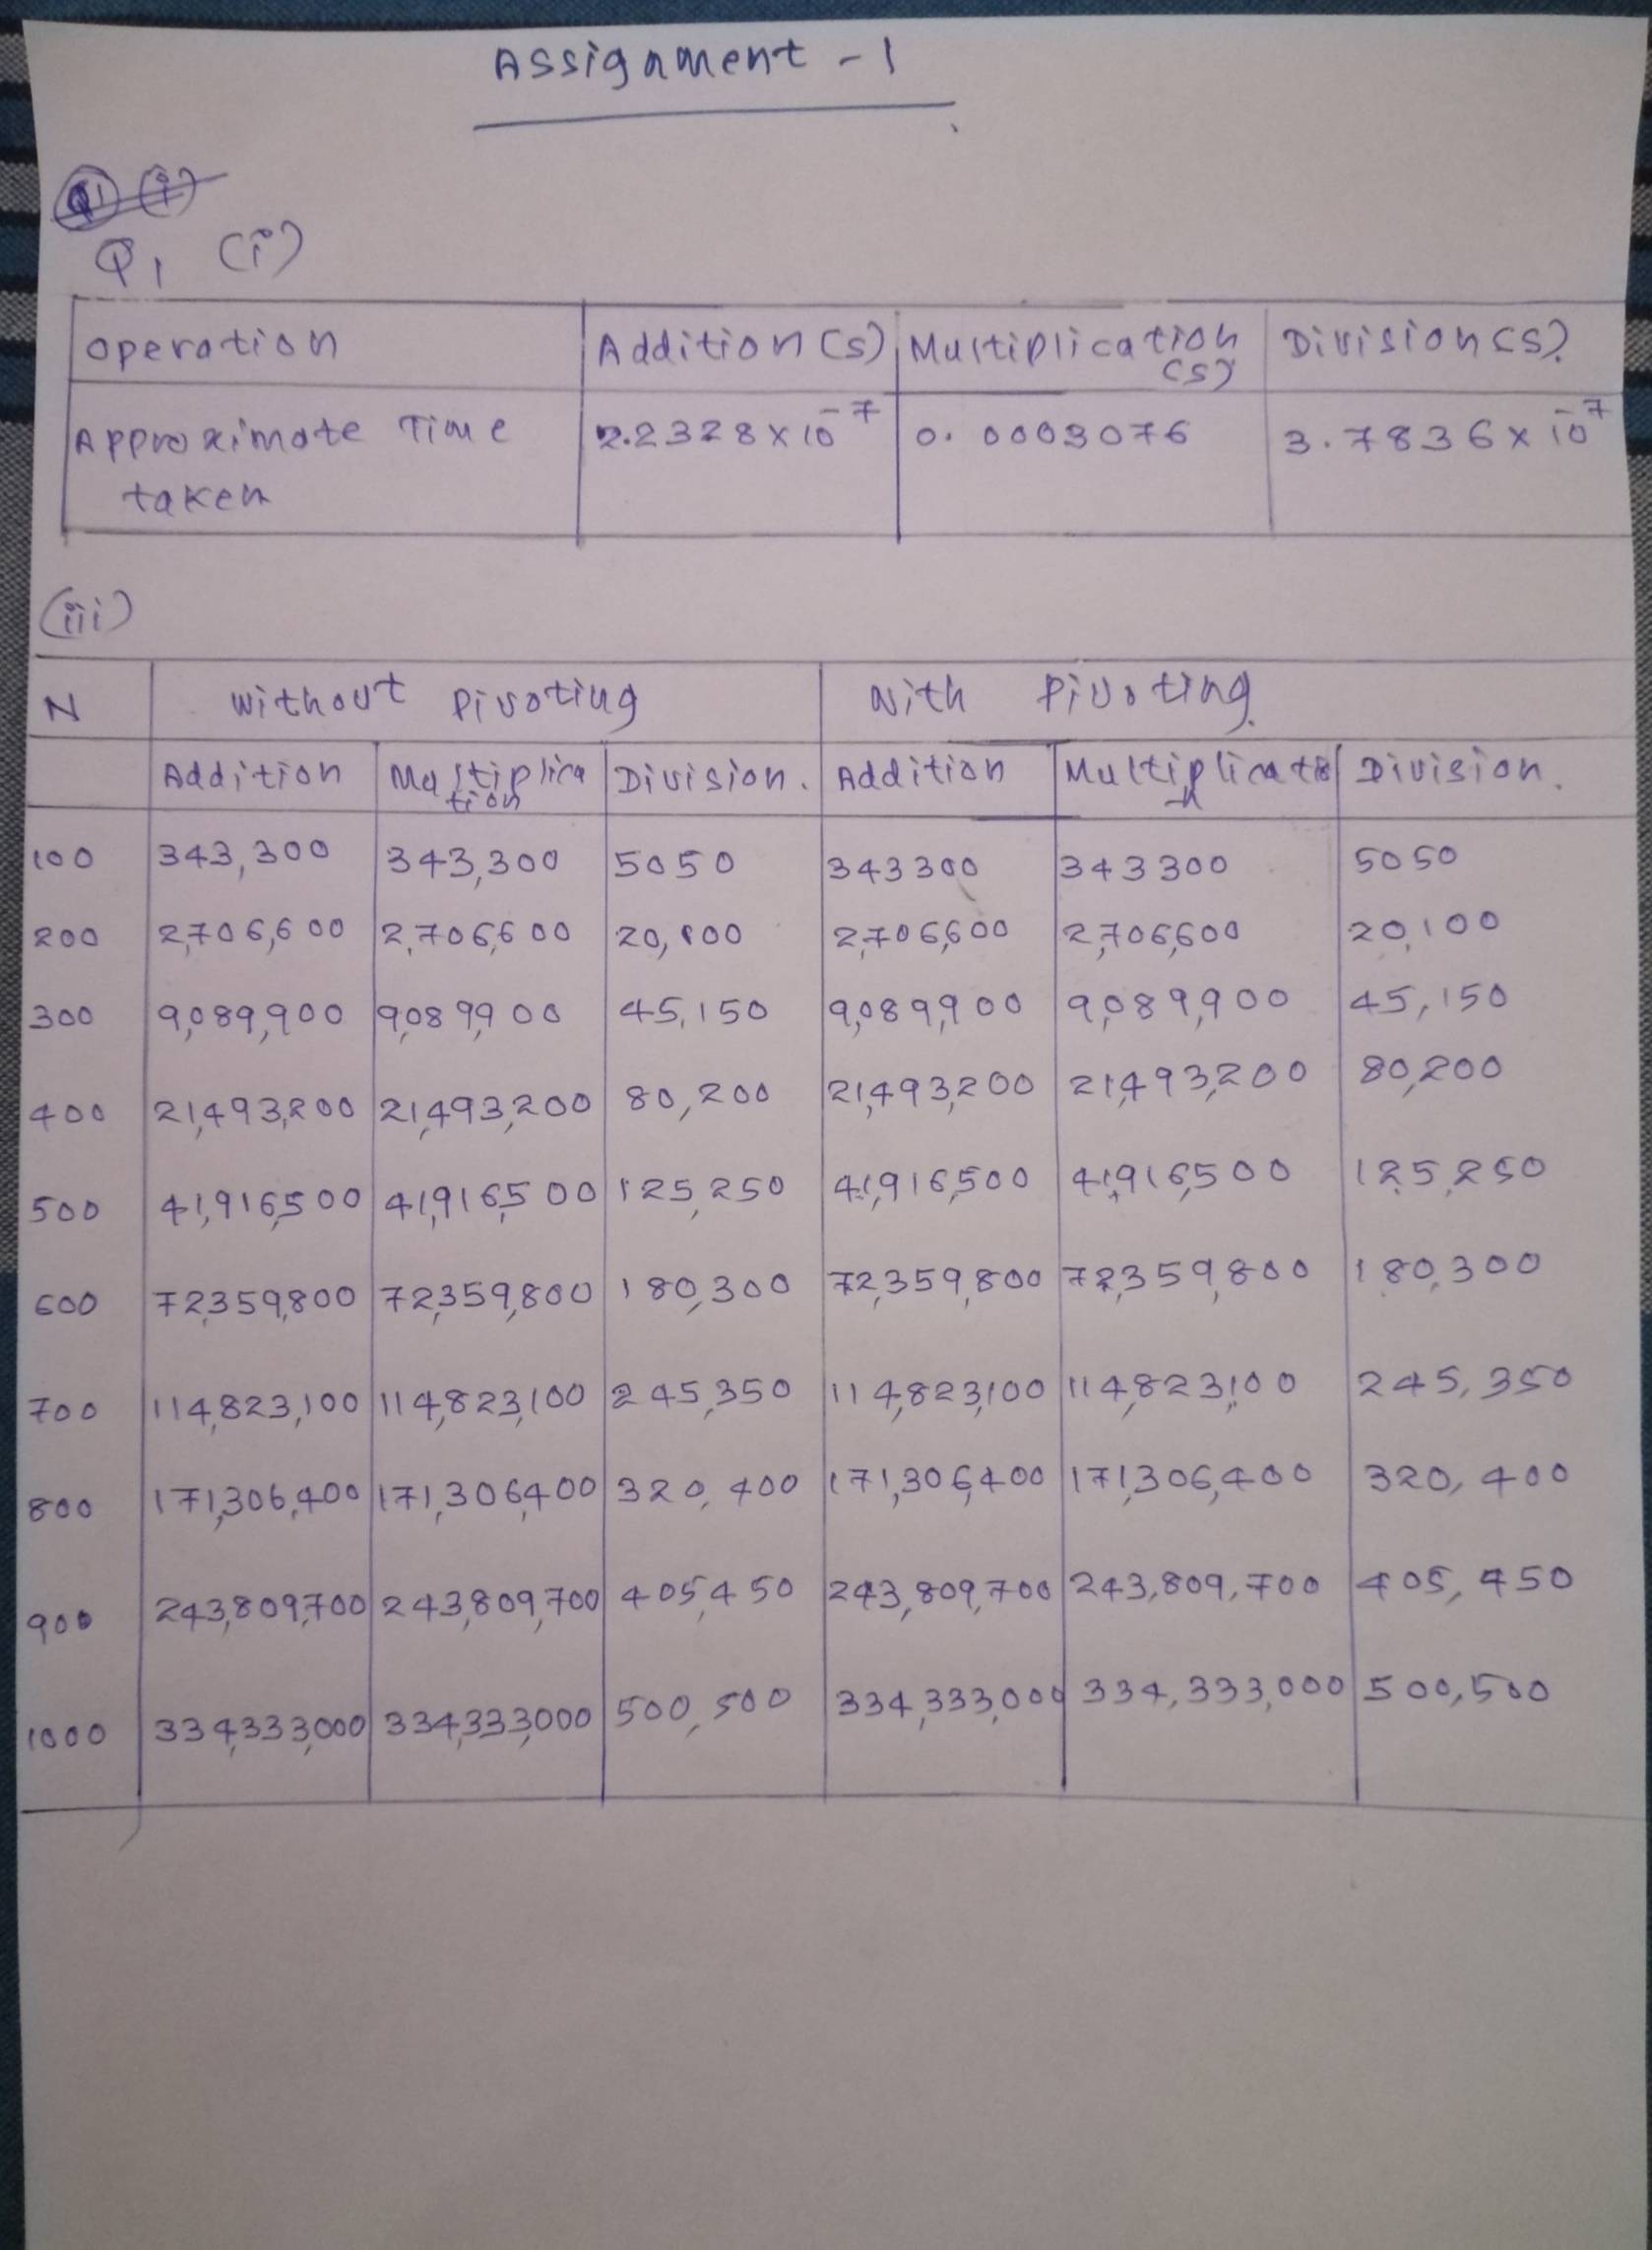 Assignment - 1
Q1 (i)
Operation | Addition (s) | Multiplication (s) | Division (s)
Approximate Time taken | 2.2328 x 10^-7 | 0.0003076 | 3.7836 x 10^-7
(iii)
N | Without Pivoting | With Pivoting
Addition | Multiplication | Division. | Addition | Multiplication | Division.
100 | 343,300 | 343,300 | 5050 | 343300 | 343300 | 5050
200 | 2,706,600 | 2,706,600 | 20,100 | 2,706,600 | 2,706,600 | 20,100
300 | 9,089,900 | 9,089,900 | 45,150 | 9,089,900 | 9,089,900 | 45,150
400 | 21,493,200 | 21,493,200 | 80,200 | 21,493,200 | 21,493,200 | 80,200
500 | 41,916,500 | 41,916,500 | 125,250 | 41,916,500 | 41,916,500 | 125,250
600 | 72,359,800 | 72,359,800 | 180,300 | 72,359,800 | 72,359,800 | 180,300
700 | 114,823,100 | 114,823,100 | 245,350 | 114,823,100 | 114,823,100 | 245,350
800 | 171,306,400 | 171,306,400 | 320,400 | 171,306,400 | 171,306,400 | 320,400
900 | 243,809,700 | 243,809,700 | 405,450 | 243,809,700 | 243,809,700 | 405,450
1000 | 334,333,000 | 334,333,000 | 500,500 | 334,333,000 | 334,333,000 | 500,500